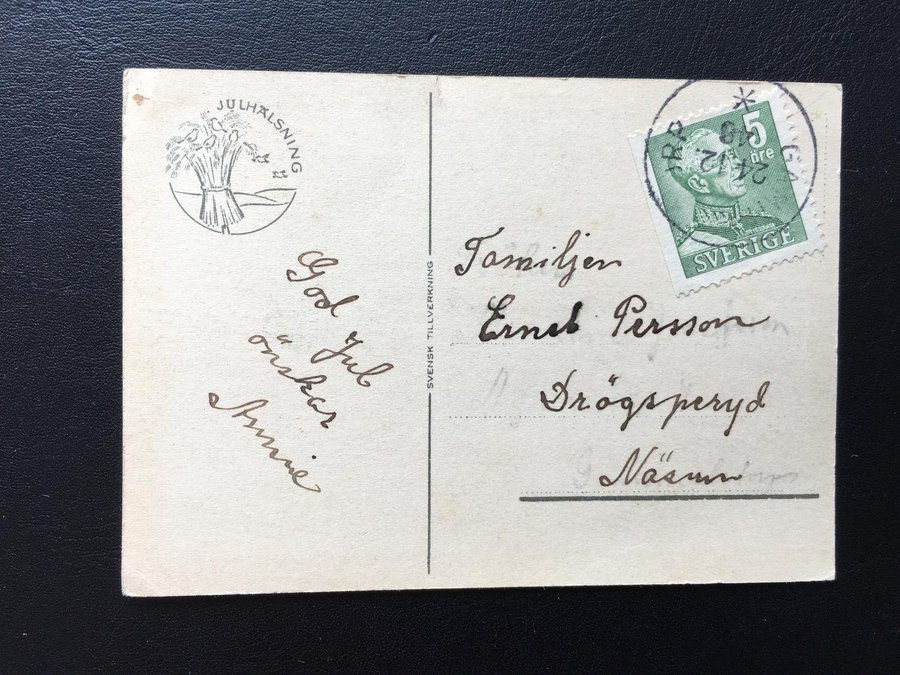 JULHÄLSNING
God Jul
önskar
Annie
SVENSK TILLVERKNING
Familjen
Ernst Persson
Drögsperyd
Näsum
5
öre
SVERIGE
24 12
48